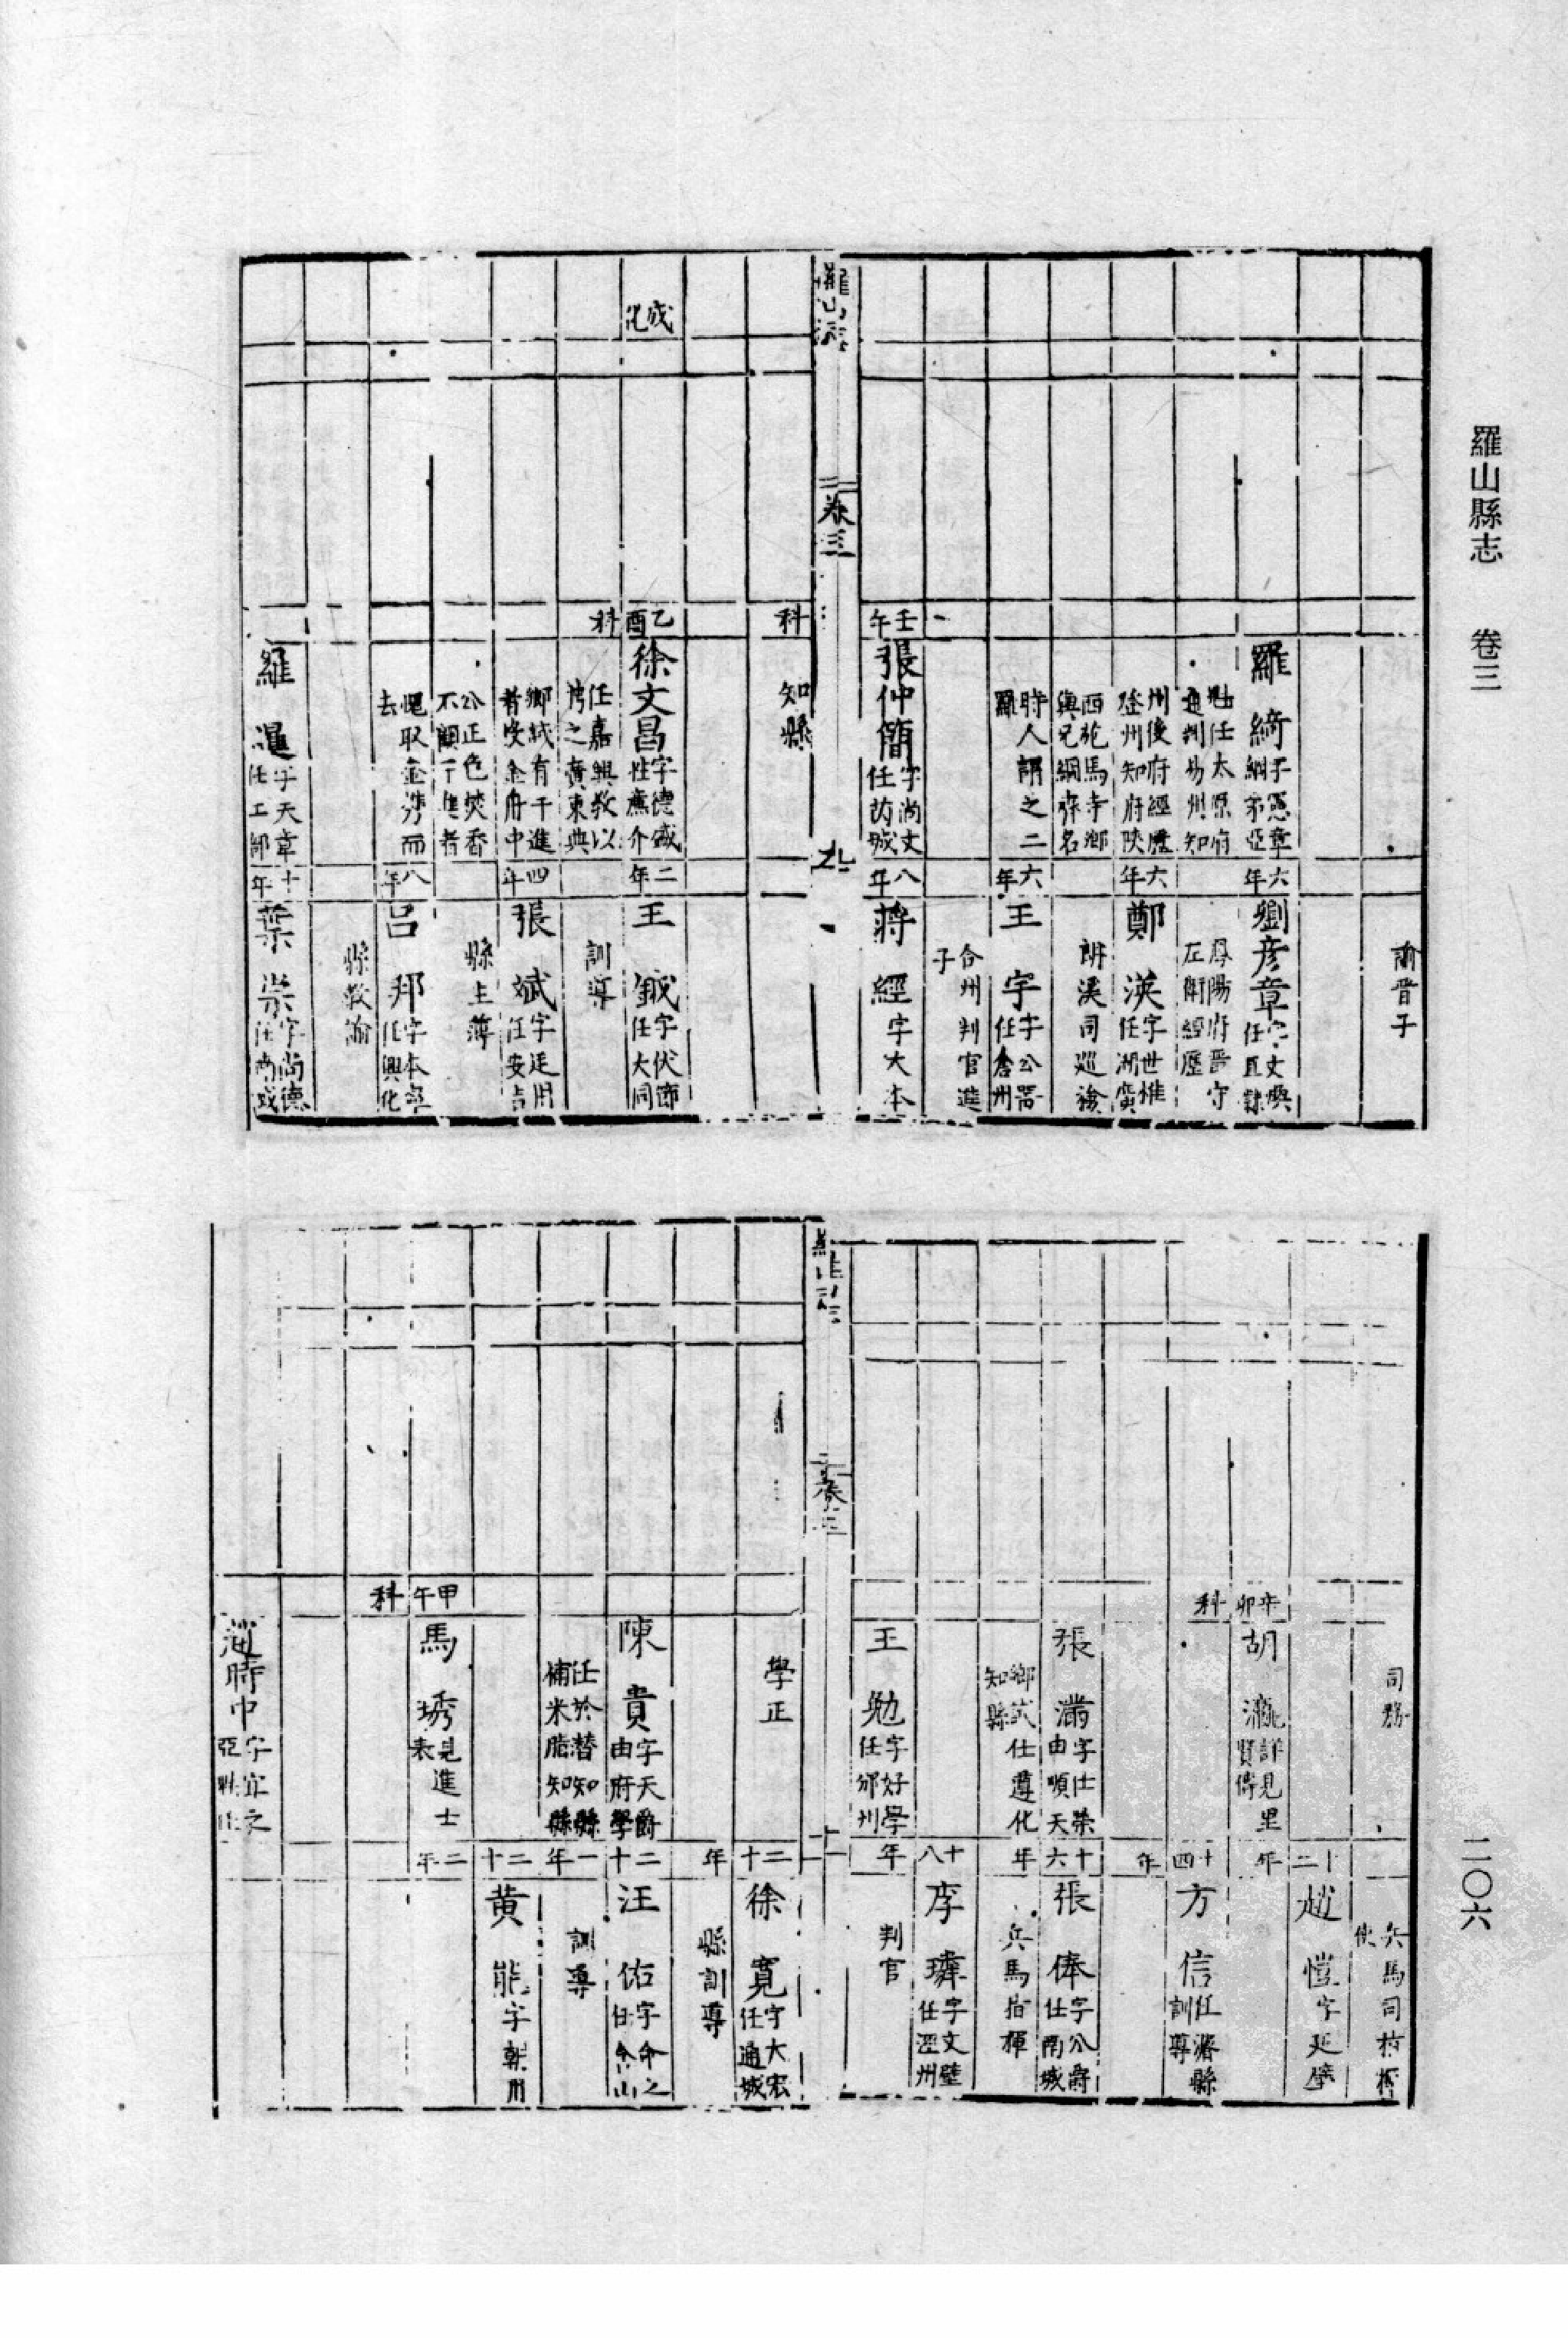 羅山縣志　卷三
二〇六
諭晉子
羅綺字憲章
綱弟亞
六年
劉彥章字文煥
任直隸
魁任太原府
通判易州知
鳳陽府晉守
左衛經歷
州後府經歷
登州知府陝
六年
鄭渶字世惟
任湖廣
西苑馬寺鄉
與兄綱齊名
辨溪司巡檢
時人謂之二
羅
六年
王宇字公器
任倉州
合州判官進
子
壬午
張仲簡字尚文
任芮城
八年
蔣經字大本
羅山志
卷三
九
科
知縣
成化
乙酉
徐文昌字德盛
性廉介
二年
王鉞字伏節
任大同
科
任嘉興教以
博之廣東典
訓導
鄉試有干進
者受金府中
四年
張斌字廷用
任安吉
公正色焚香
不顧干進者
縣主薄
愧取金湾而
去
八年
呂邦字本寧
任興化
縣教諭
羅暹字天章
任工部
十年
葉崇字尚德
任尚城
司務
兵馬司指揮
使
十二
趙愷字延璧
辛卯
胡瀧詳見里
賢傳
年
科
十四
方信任濬縣
訓導
年
張瀟字仕榮
由順天
十六
張俸字公爵
任南城
鄉試仕遵化
知縣
年
兵馬指揮
十八
李璘字文璧
任涇州
王勉字好學
任邠州
年
判官
羅山志
卷三
十
學正
二十
徐寬字大宏
任通城
年
縣訓導
陳貴字天爵
由府學
二十
汪佑字命之
任含山
任於潜知縣
補米脂知縣
一年
訓導
二十
黄能字朝用
甲午
馬琇見進士
表
二年
科
趙時中字宜之
亞魁任